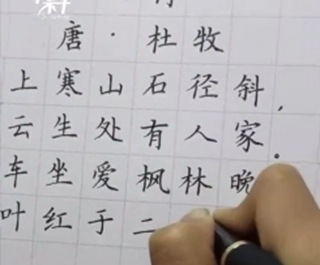 唐·杜牧
上寒山石径斜，
云生处有人家.
车坐爱枫林晚
叶红于二